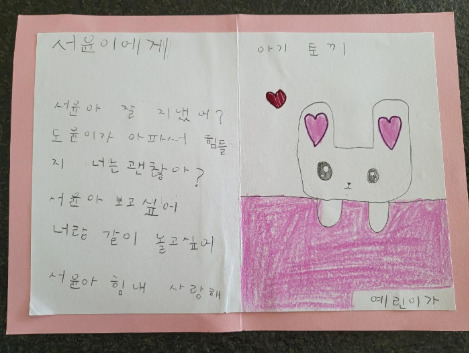 서윤이에게
서윤아 잘 지냈어?
도윤이가 아파서 힘들
지 너는 괜찮아?
서윤아 보고싶어
너랑 같이 놀고싶어
서윤아 힘내 사랑해
아기 토끼
예린이가